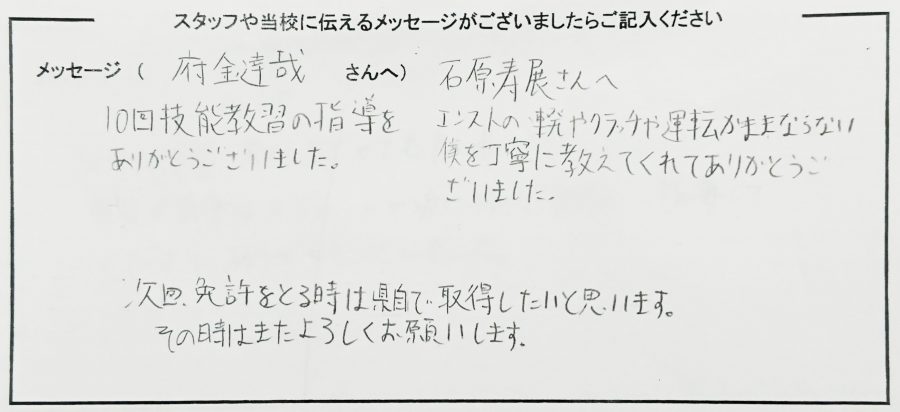 スタッフや当校に伝えるメッセージがございましたらご記入ください
メッセージ ( 府金達哉 さんへ)
10回技能教習の指導を
ありがとうございました。
石原寿展さんへ
エンストの 発やクラッチや運転がままならない
僕を丁寧に教えてくれてありがとうご
ざいました。
次回、免許をとる時は県自で取得したいと思います。
その時はまたよろしくお願いします。